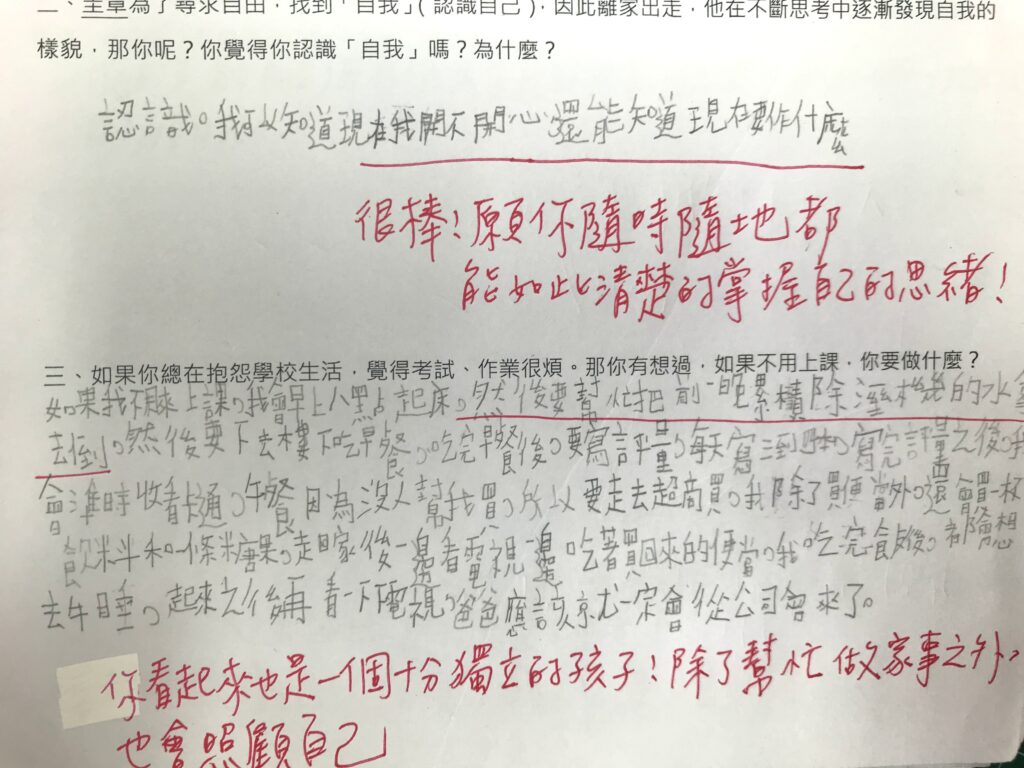 二、主章為了尋求自由，找到「自我」（認識自己），因此離家出走，他在不斷思考中逐漸發現自我的
樣貌，那你呢？你覺得你認識「自我」嗎？為什麼？
認識。我可以知道現在我開不開心還能知道現在要作什麼
很棒！願你隨時隨地都
能如此清楚的掌握自己的思緒！
三、如果你總在抱怨學校生活，覺得考試、作業很煩。那你有想過，如果不用上課，你要做什麼？
如果我不用來上課。我會早上八點起床。然後要幫忙把前一晚累積除溼機的水拿
去倒。然後要下去樓下吃早餐。吃完早餐後。要寫評量。每天寫。寫完評量之後。我
會準時收看卡通。午餐因為沒人幫我買。所以要走去超商買。我除了買便當外。還會買一杯
飲料和一條糖果。走回家後一邊看電視一邊吃著買回來的便當。我吃完飯後。都會想
去午睡。起來之後再看一下電視。爸爸應該就一定會從公司回來了。
你看起來也是一個十分獨立的孩子！除了幫忙做家事之外，
也會照顧自己